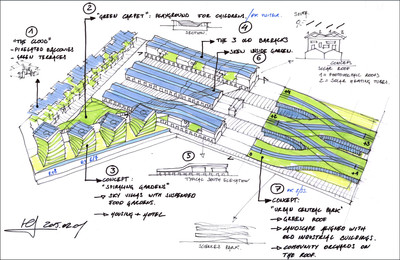 1
"THE CLOUD"
→ PIXELATED BALCONIES
→ GREEN TERRACES
2
"GREEN CARPET": PLAYGROUND FOR CHILDREN
SECTION
4
THE 3 OLD BARRACKS
6
GREEN INSIDE GARDEN.
CONCEPT
SOLAR ROOF
1 = PHOTOVOLTAIC ROOFS
2 = SOLAR HEATING TUBES.
3
CONCEPT:
"SPIRALING GARDENS"
→ SKY VILLAS WITH SUSPENDED
FOOD GARDENS.
→ HOUSING + HOTEL
5
TYPICAL SOUTH ELEVATION
7
CONCEPT:
"URBAN CENTRAL PARK"
→ GREEN ROOF
→ LANDSCAPE ALIGNED WITH
OLD INDUSTRIAL BUILDINGS.
→ COMMUNITY ORCHARDS ON
THE ROOF.